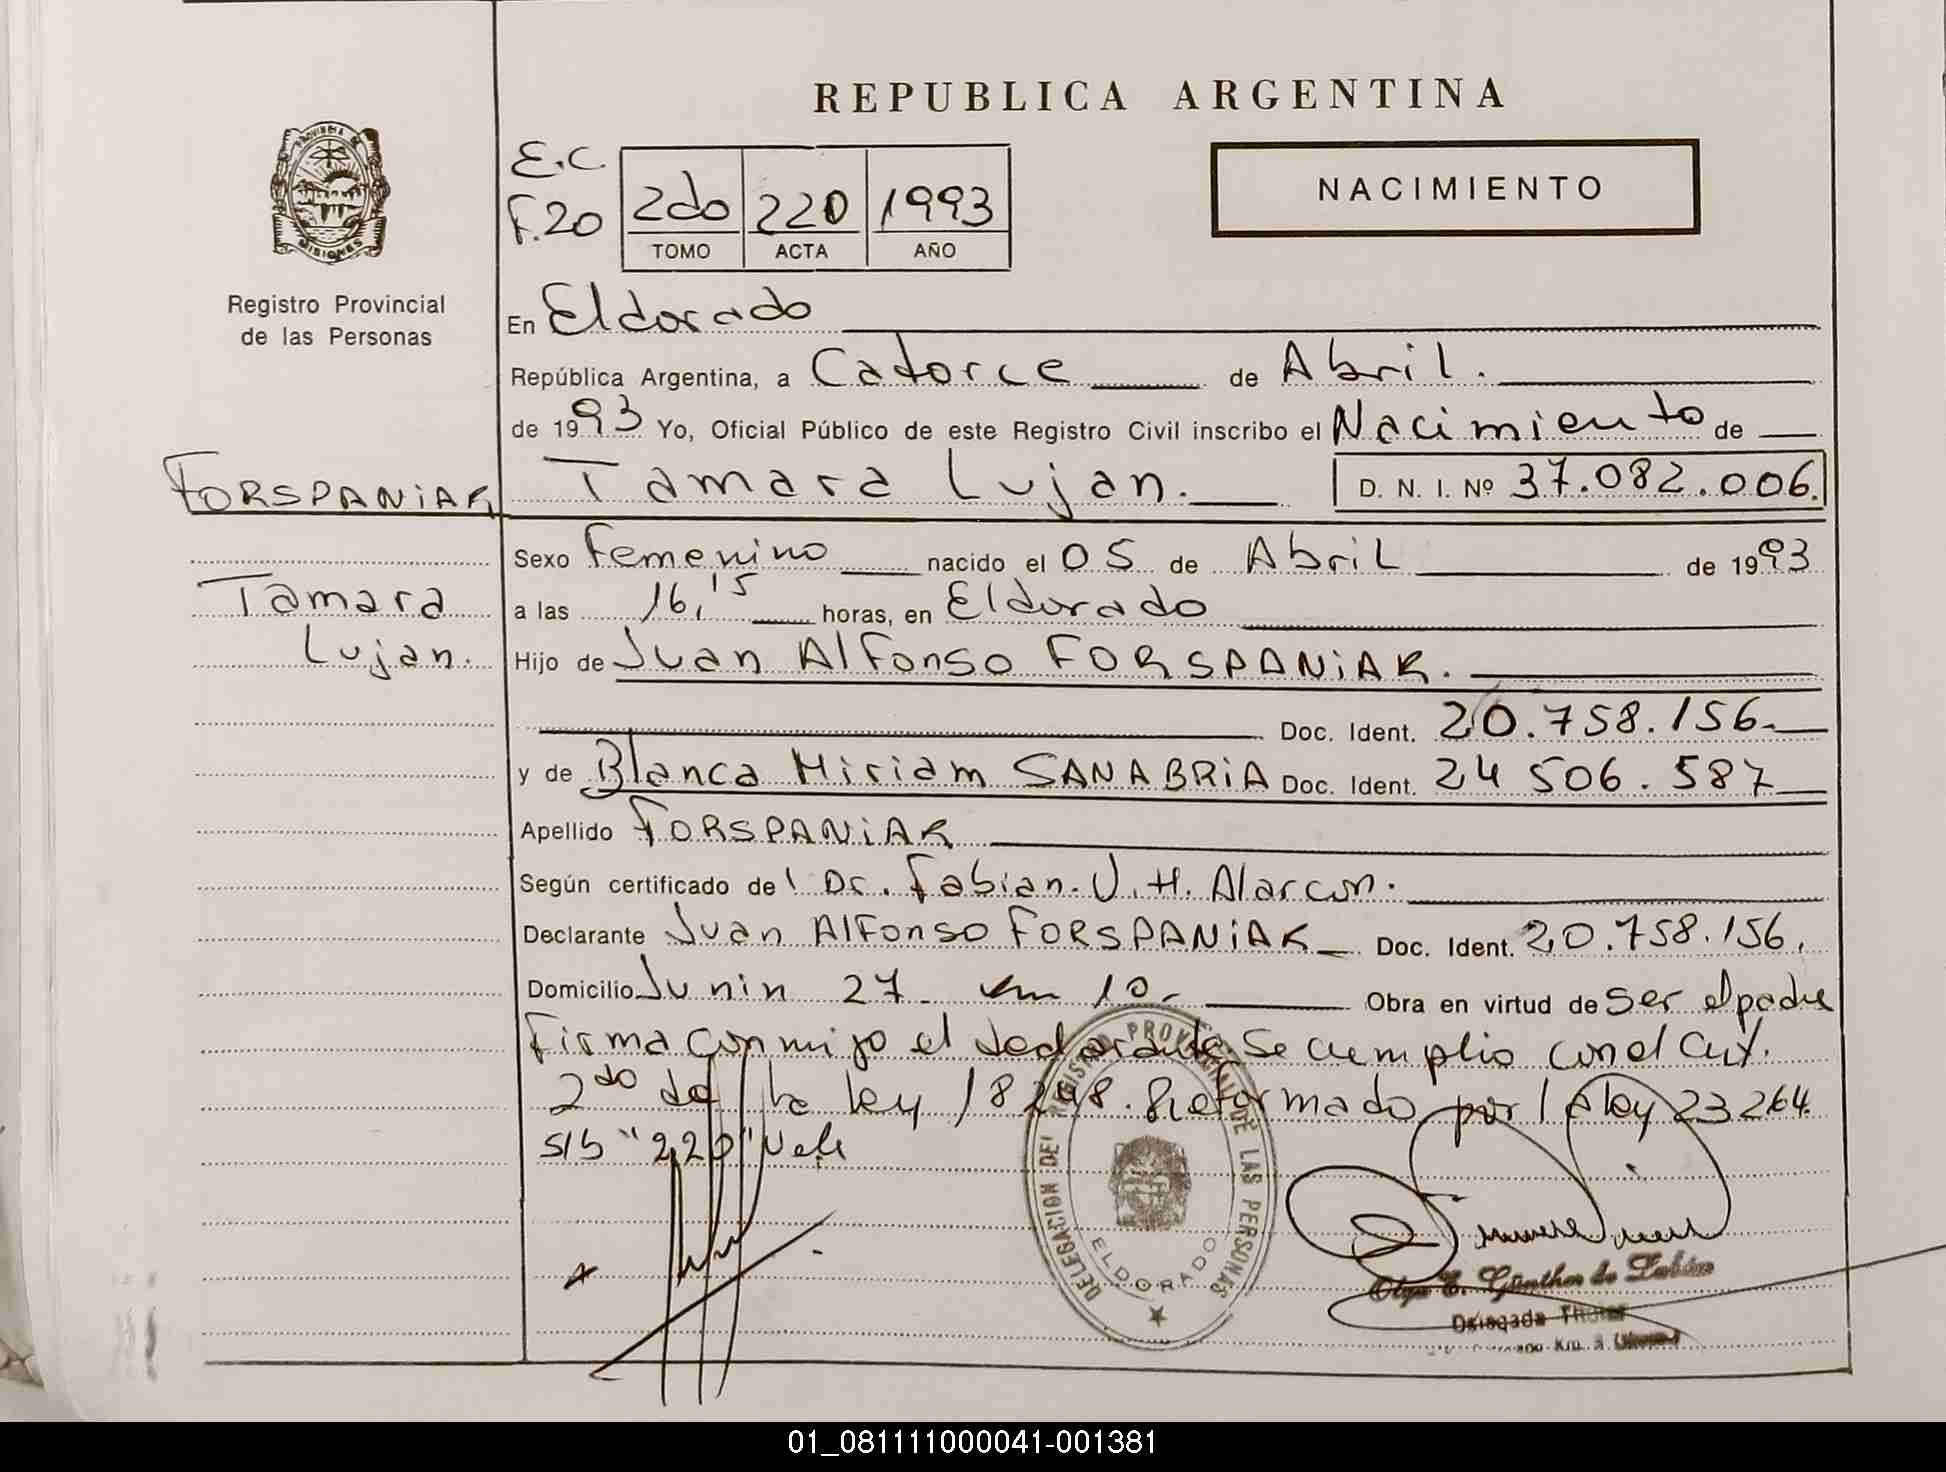 REPUBLICA ARGENTINA
PROVINCIA DE MISIONES
Registro Provincial
de las Personas
E.C.
F.20
2do 220 1993
TOMO ACTA AÑO
NACIMIENTO
En Eldorado
República Argentina, a Catorce de Abril.
de 1993 Yo, Oficial Público de este Registro Civil inscribo el Nacimiento de
FORSPANiAK
Tamara Lujan.
Tamara Lujan. D. N. I. Nº 37.082.006.
Sexo Femenino nacido el 05 de Abril de 1993
a las 16,15 horas, en Eldorado
Hijo de Juan Alfonso FORSPANiAK.
Doc. Ident. 20.758.156-
y de Blanca Miriam SANABRiA Doc. Ident. 24 506.587
Apellido FORSPANiAK
Según certificado del Dr. Fabian. U.H. Alarcon.
Declarante Juan Alfonso FORSPANiAK Doc. Ident. 20.758.156.
Domicilio Junin 27 - Km 10- Obra en virtud de ser el padre
Firma conmigo el declarante se cumplio con el Art.
2do de la ley 18248. Reformado por la ley 23264.
S/b "220" Vale
DELEGACION DEL REGISTRO PROVINCIAL DE LAS PERSONAS
ELDORADO
Olga E. Günther de
Delegada Titular
01_081111000041-001381